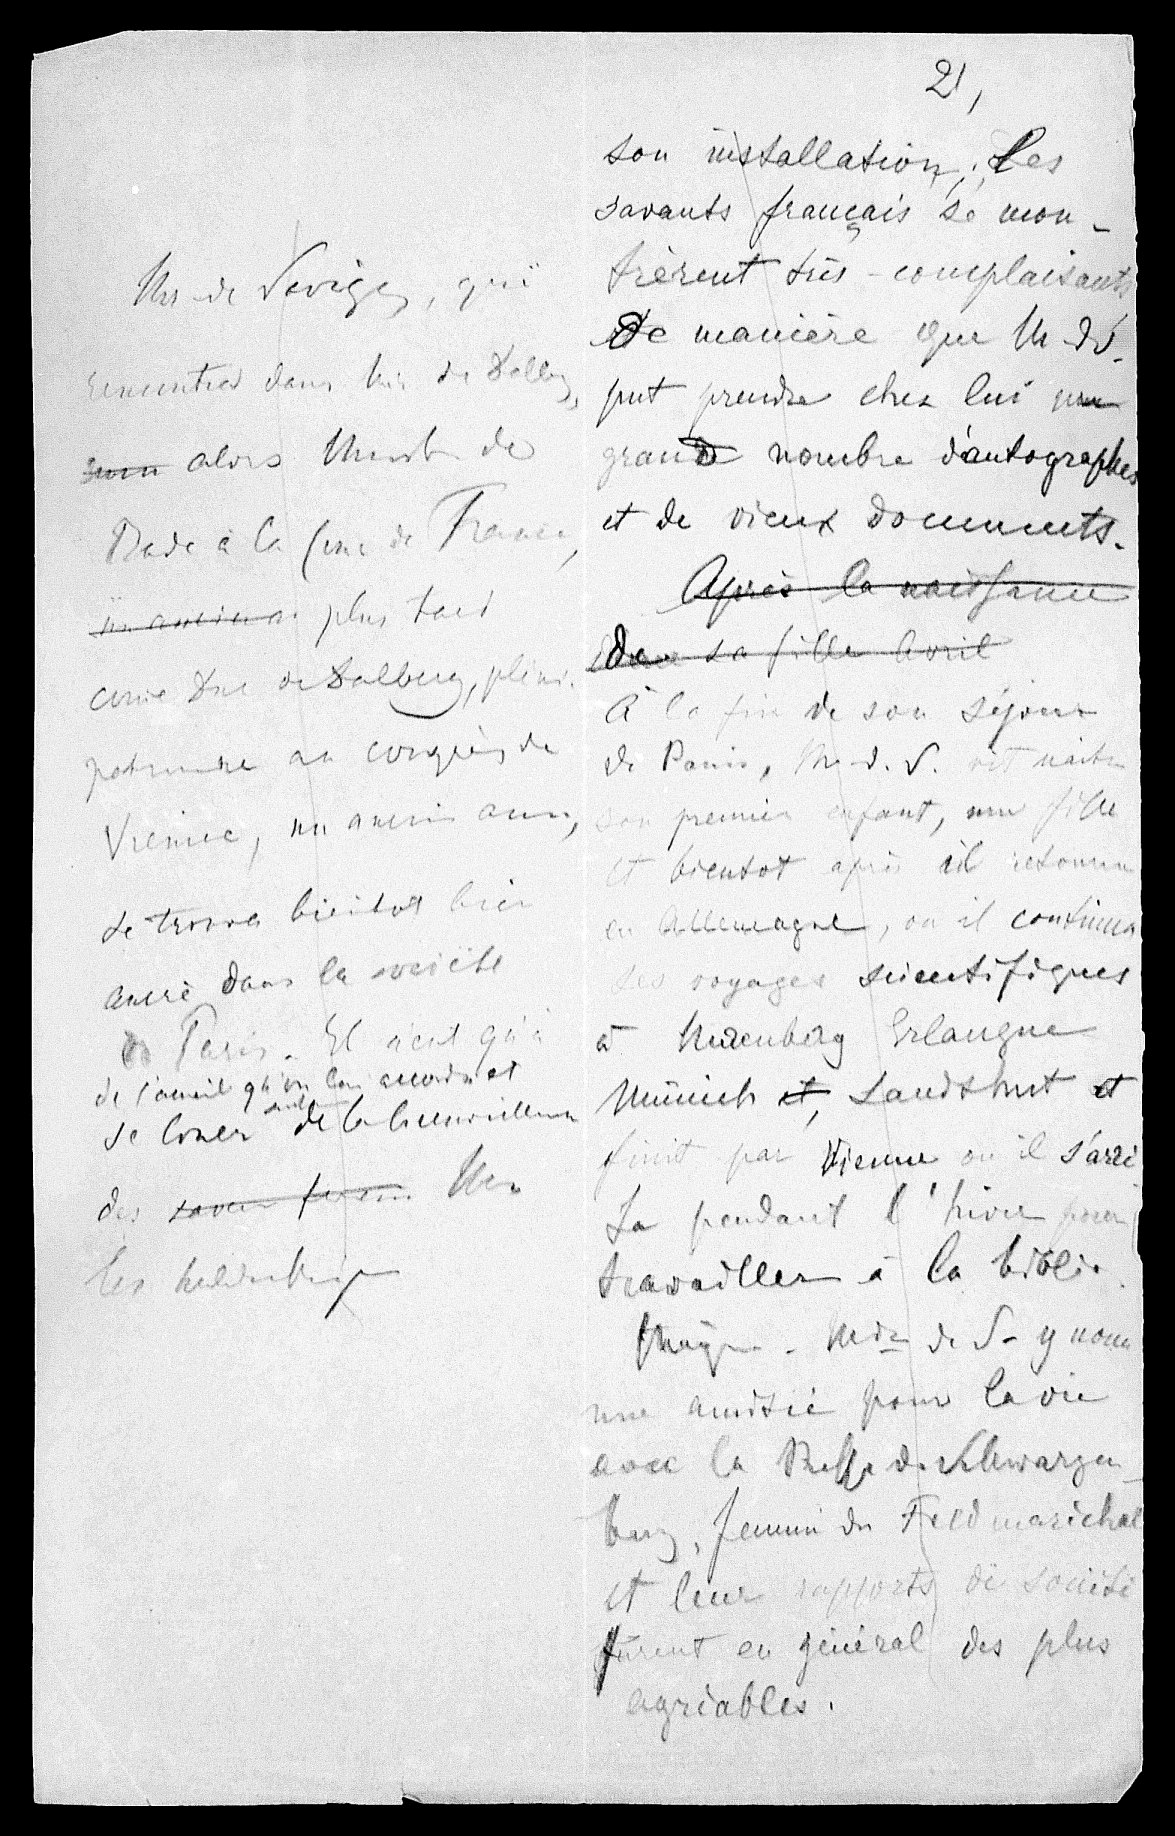 21,
son installation, Les
savants français se mon-
trèrent très-complaisants
De manière que Mr d S.
put prendre chez lui un
grand nombre d'autographes
et de vieux documents.
Après la naissance
de sa fille Avril
À la fin de son séjour
de Paris, Mr. d. S. vit naître
son premier enfant, une fille
et bientot après il retourna
en Allemagne, où il continua
ses voyages scientifiques
à Nurenberg Erlangue
Münich et, Landshut et
finit par Vienne où il s'arrê
ta pendant l'hiver pour
travailler à la biblio
thèque. Mde de S- y noua
une amitié pour la vie
avec la Psse de Schwarzen-
berg, femme du Feldmaréchal
et leur rapports de société
furent en général des plus
agréables.
Mr de Savigny, qui
rencontra dans Mr de Dalberg,
alors Ministre de
Bade à la Cour de France,
plus tard
Duc de Dalberg, pléni-
potentiaire au congrès de
Vienne, un ancien ami,
se trouva bientot bien
ancré dans la société
de Paris. Et n'eut qu'à
de l'acueil qu'on lui accordait
se louer de la bienveillance
des